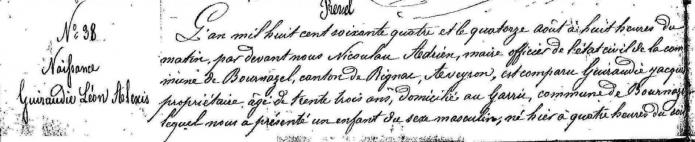 N° 38
Naissance
Guiraudie Léon Alexis
L'an mil huit cent soixante quatre et le quatorze août à huit heures du
matin, par devant nous Nicoulau Adrien, maire officier de l'état civil de la com
mune de Bournazel, canton de Rignac, Aveyron, est comparu Guiraudie Jacques
propriétaire âgé de trente trois ans, domicilié au Garric, commune de Bournazel
lequel nous a présenté un enfant du sexe masculin, né hier à quatre heures du soir